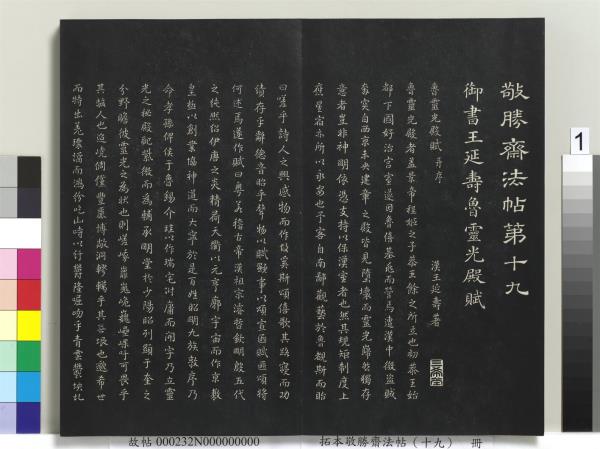 敬勝齋法帖第十九
御書王延壽魯靈光殿賦
魯靈光殿賦 并序 漢王延壽著
三希堂
魯靈光殿者蓋景帝程姬之子恭王餘之所立也初恭王始
都下國好治宮室遂因魯僖基兆而營焉遭漢中微盜賊
奔突自西京未央建章之殿皆見隳壞而靈光巋然獨存
意者豈非神明依憑支持以保漢室者也然其規矩制度上
應星宿亦所以永安也予客自南鄙觀藝於魯覩斯而眙
曰嗟乎詩人之興感物而作故奚斯頌僖歌其路寢而功
績存乎辭德音昭乎聲物以賦顯事以頌宣匪賦匪頌將
何述焉遂作賦曰粵若稽古帝漢祖宗濬哲欽明殷五代
之純熙紹伊唐之炎精荷天衢以元亨廓宇宙而作京敷
皇極以創業協神道而大寧於是百姓昭明九族敦序乃
命孝孫俾侯于魯錫介珪以作瑞宅附庸而開宇乃立靈
光之秘殿配紫微而為輔承明堂於少陽昭列顯于奎之
分野瞻彼靈光之為狀也則嵯峨嶵嵬峞巍吁可畏乎
其駭人也迢嶢倜儻豐麗博敞洞轇轕乎其無垠也邈希世
而特出羌瓌譎而鴻紛屹山峙以紆鬱隆崛岉乎青雲鬱坱圠
1
故帖 000232N000000000 拓本敬勝齋法帖（十九） 冊